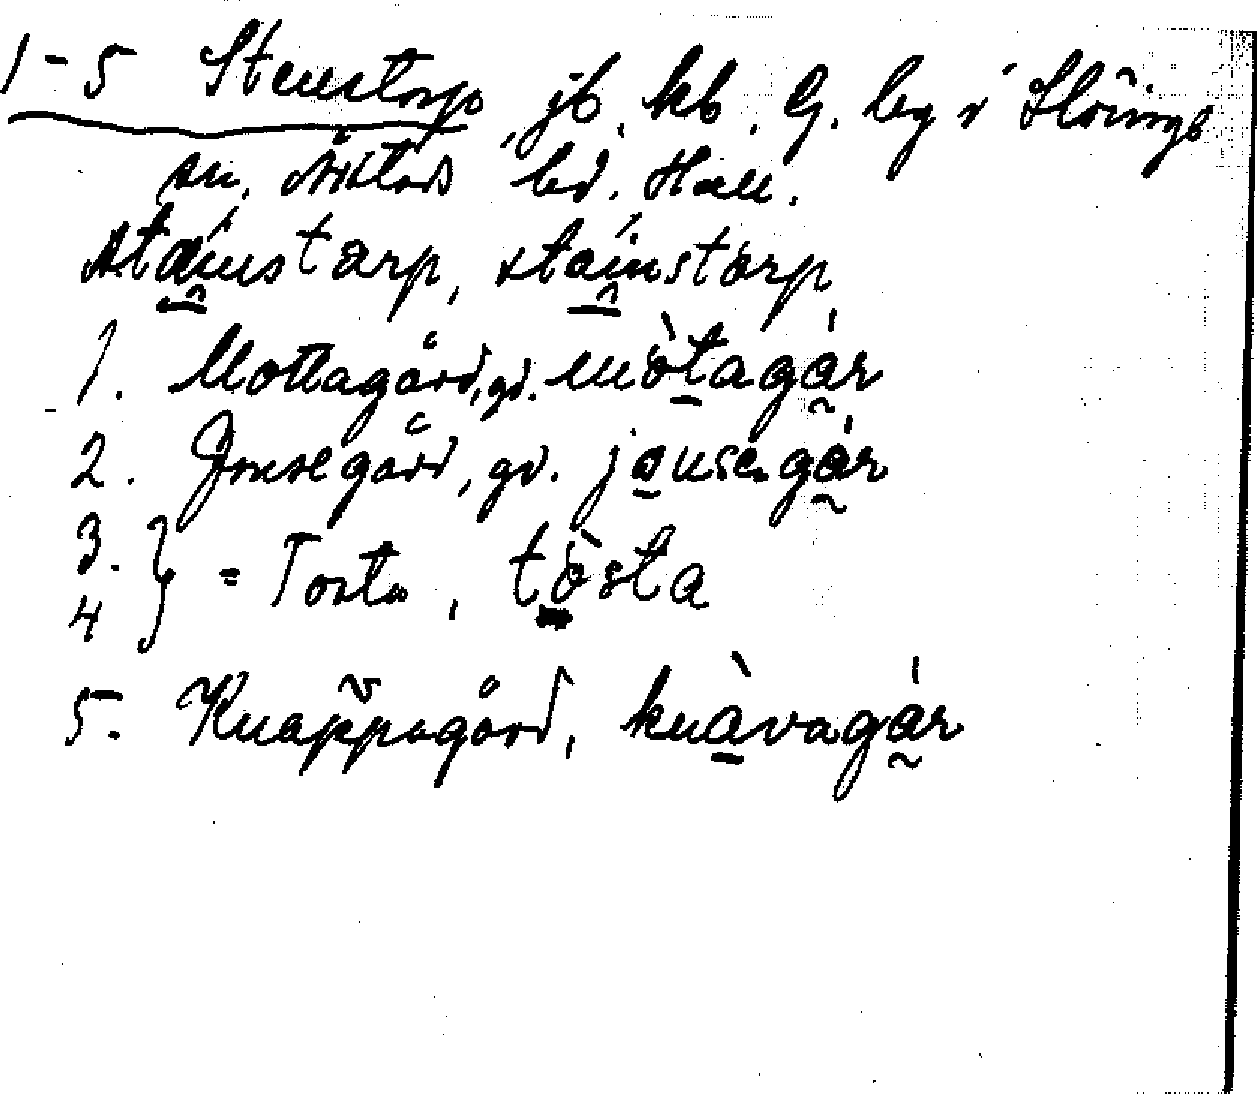 1-5 Stenstorp, jb, kb. G. by i Slöinge
sn, Årstads hd. Hall.
stáinstarp, stáinstårp
1. Mottagård, gd. mòtagár
2. Jonsegård, gd. jonsegár
3.
4 } = Tosta, tòsta
5. Knappagård, knàvagár